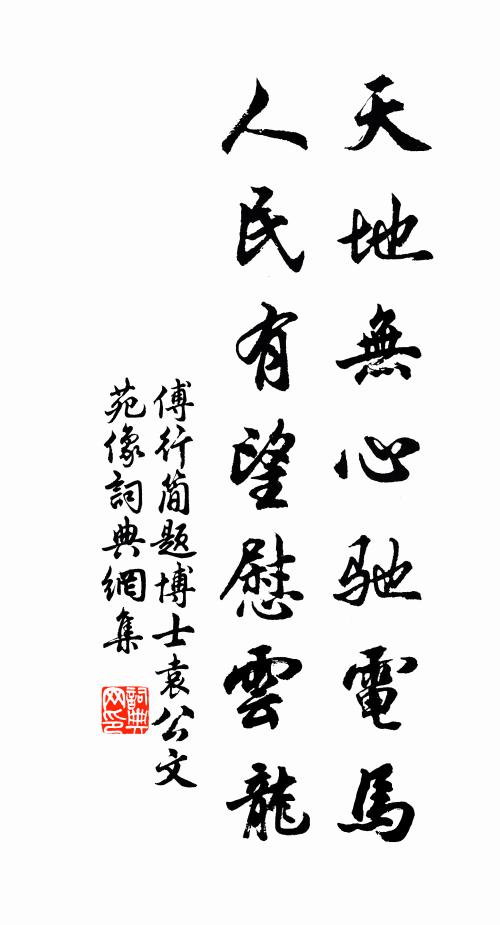 天地無心馳電馬
人民有望慰雲龍
傅行簡題博士袁公文
苑像詞典網集
詞典網印